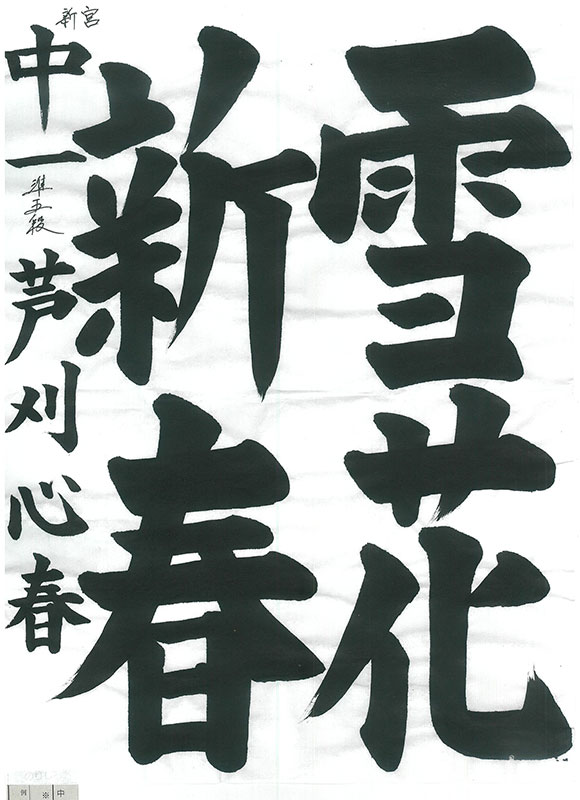 雪花
新春
新宮
中一 準五段 芦刈心春
例 ※ 中